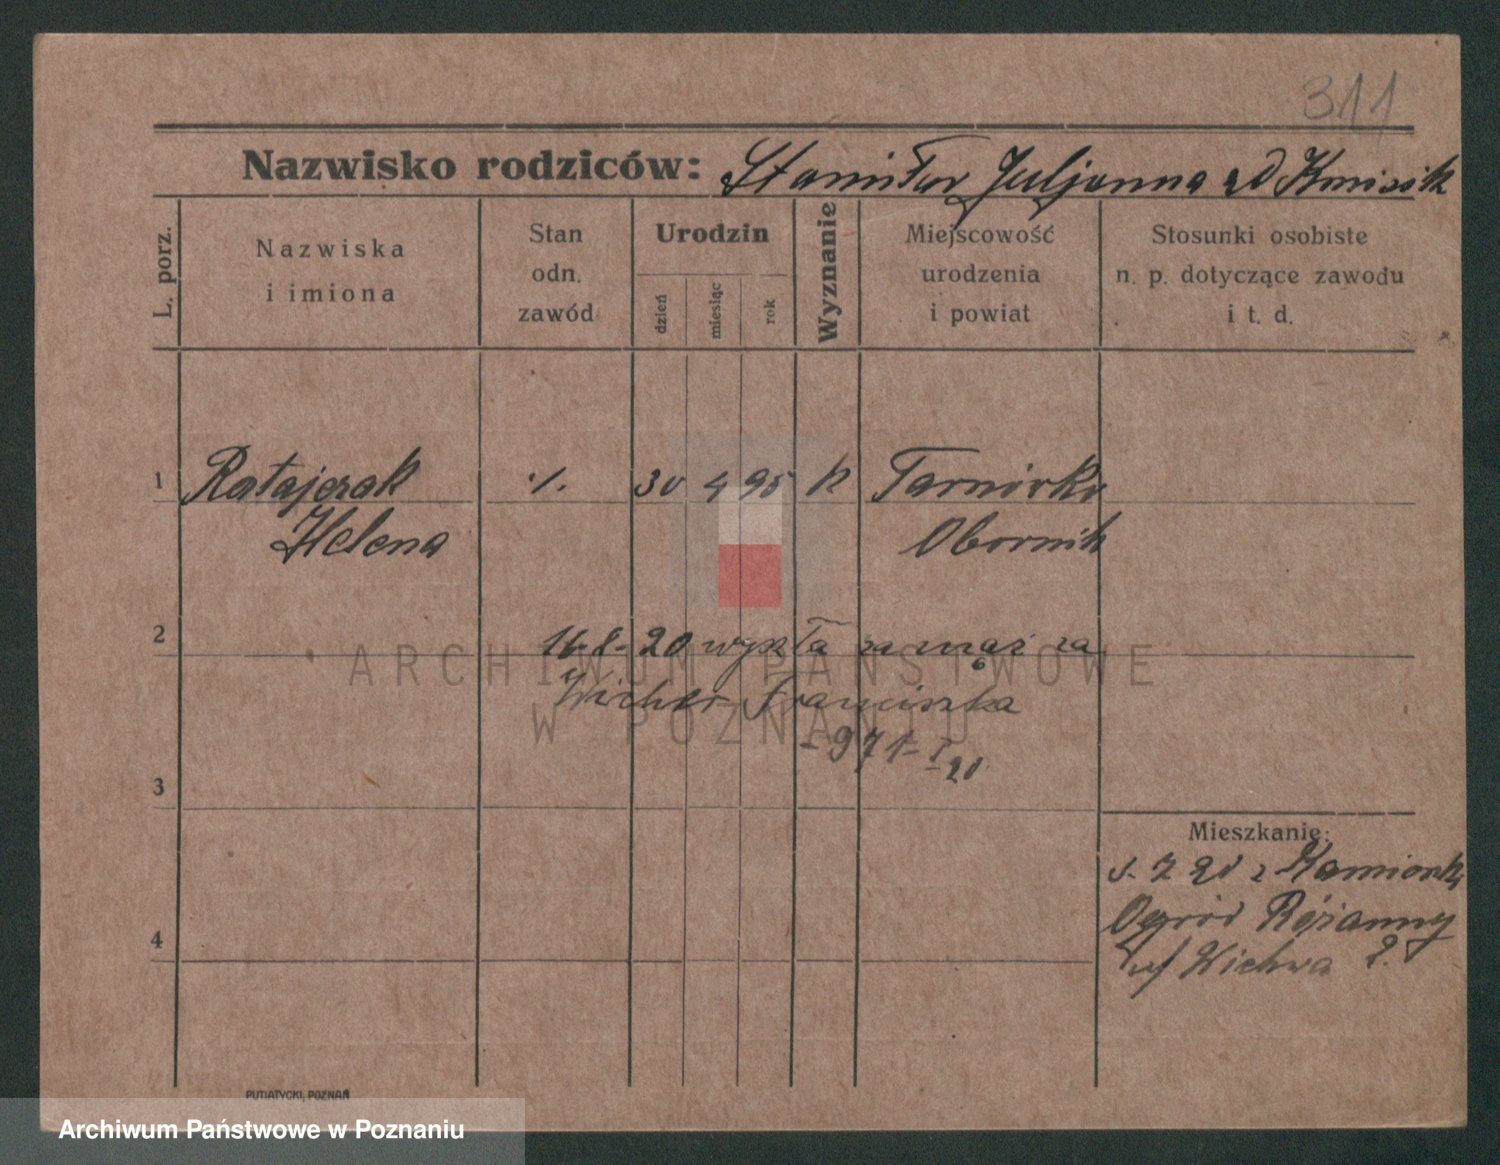 311
Nazwisko rodziców: Stanisław Juljanna
L. porz.
Nazwiska
i imiona
Stan
odn.
zawód
Urodzin
dzień
miesiąc
rok
Wyznanie
Miejscowość
urodzenia
i powiat
Stosunki osobiste
n. p. dotyczące zawodu
i t. d.
1 Ratajczak ./. 30 4 95 k Tarnówko
Helena Obornik
2 16-8-20 wyszła za mąż za
Wicher Franciszka
-971-I
-20
3
Mieszkanie:
7 20 z Kamionki
Ogród Różanny
4
u/ Wichra 2.
PUTIATYCKI, POZNAŃ
ARCHIWUM PAŃSTWOWE
W POZNANIU
Archiwum Państwowe w Poznaniu